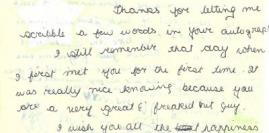 Thanks for letting me
scribble a few words in your autograph
I still remember that day when
I first met you for the first time. It
was really nice knowing because you
are a very great & freaked but guy.
I wish you all the happiness